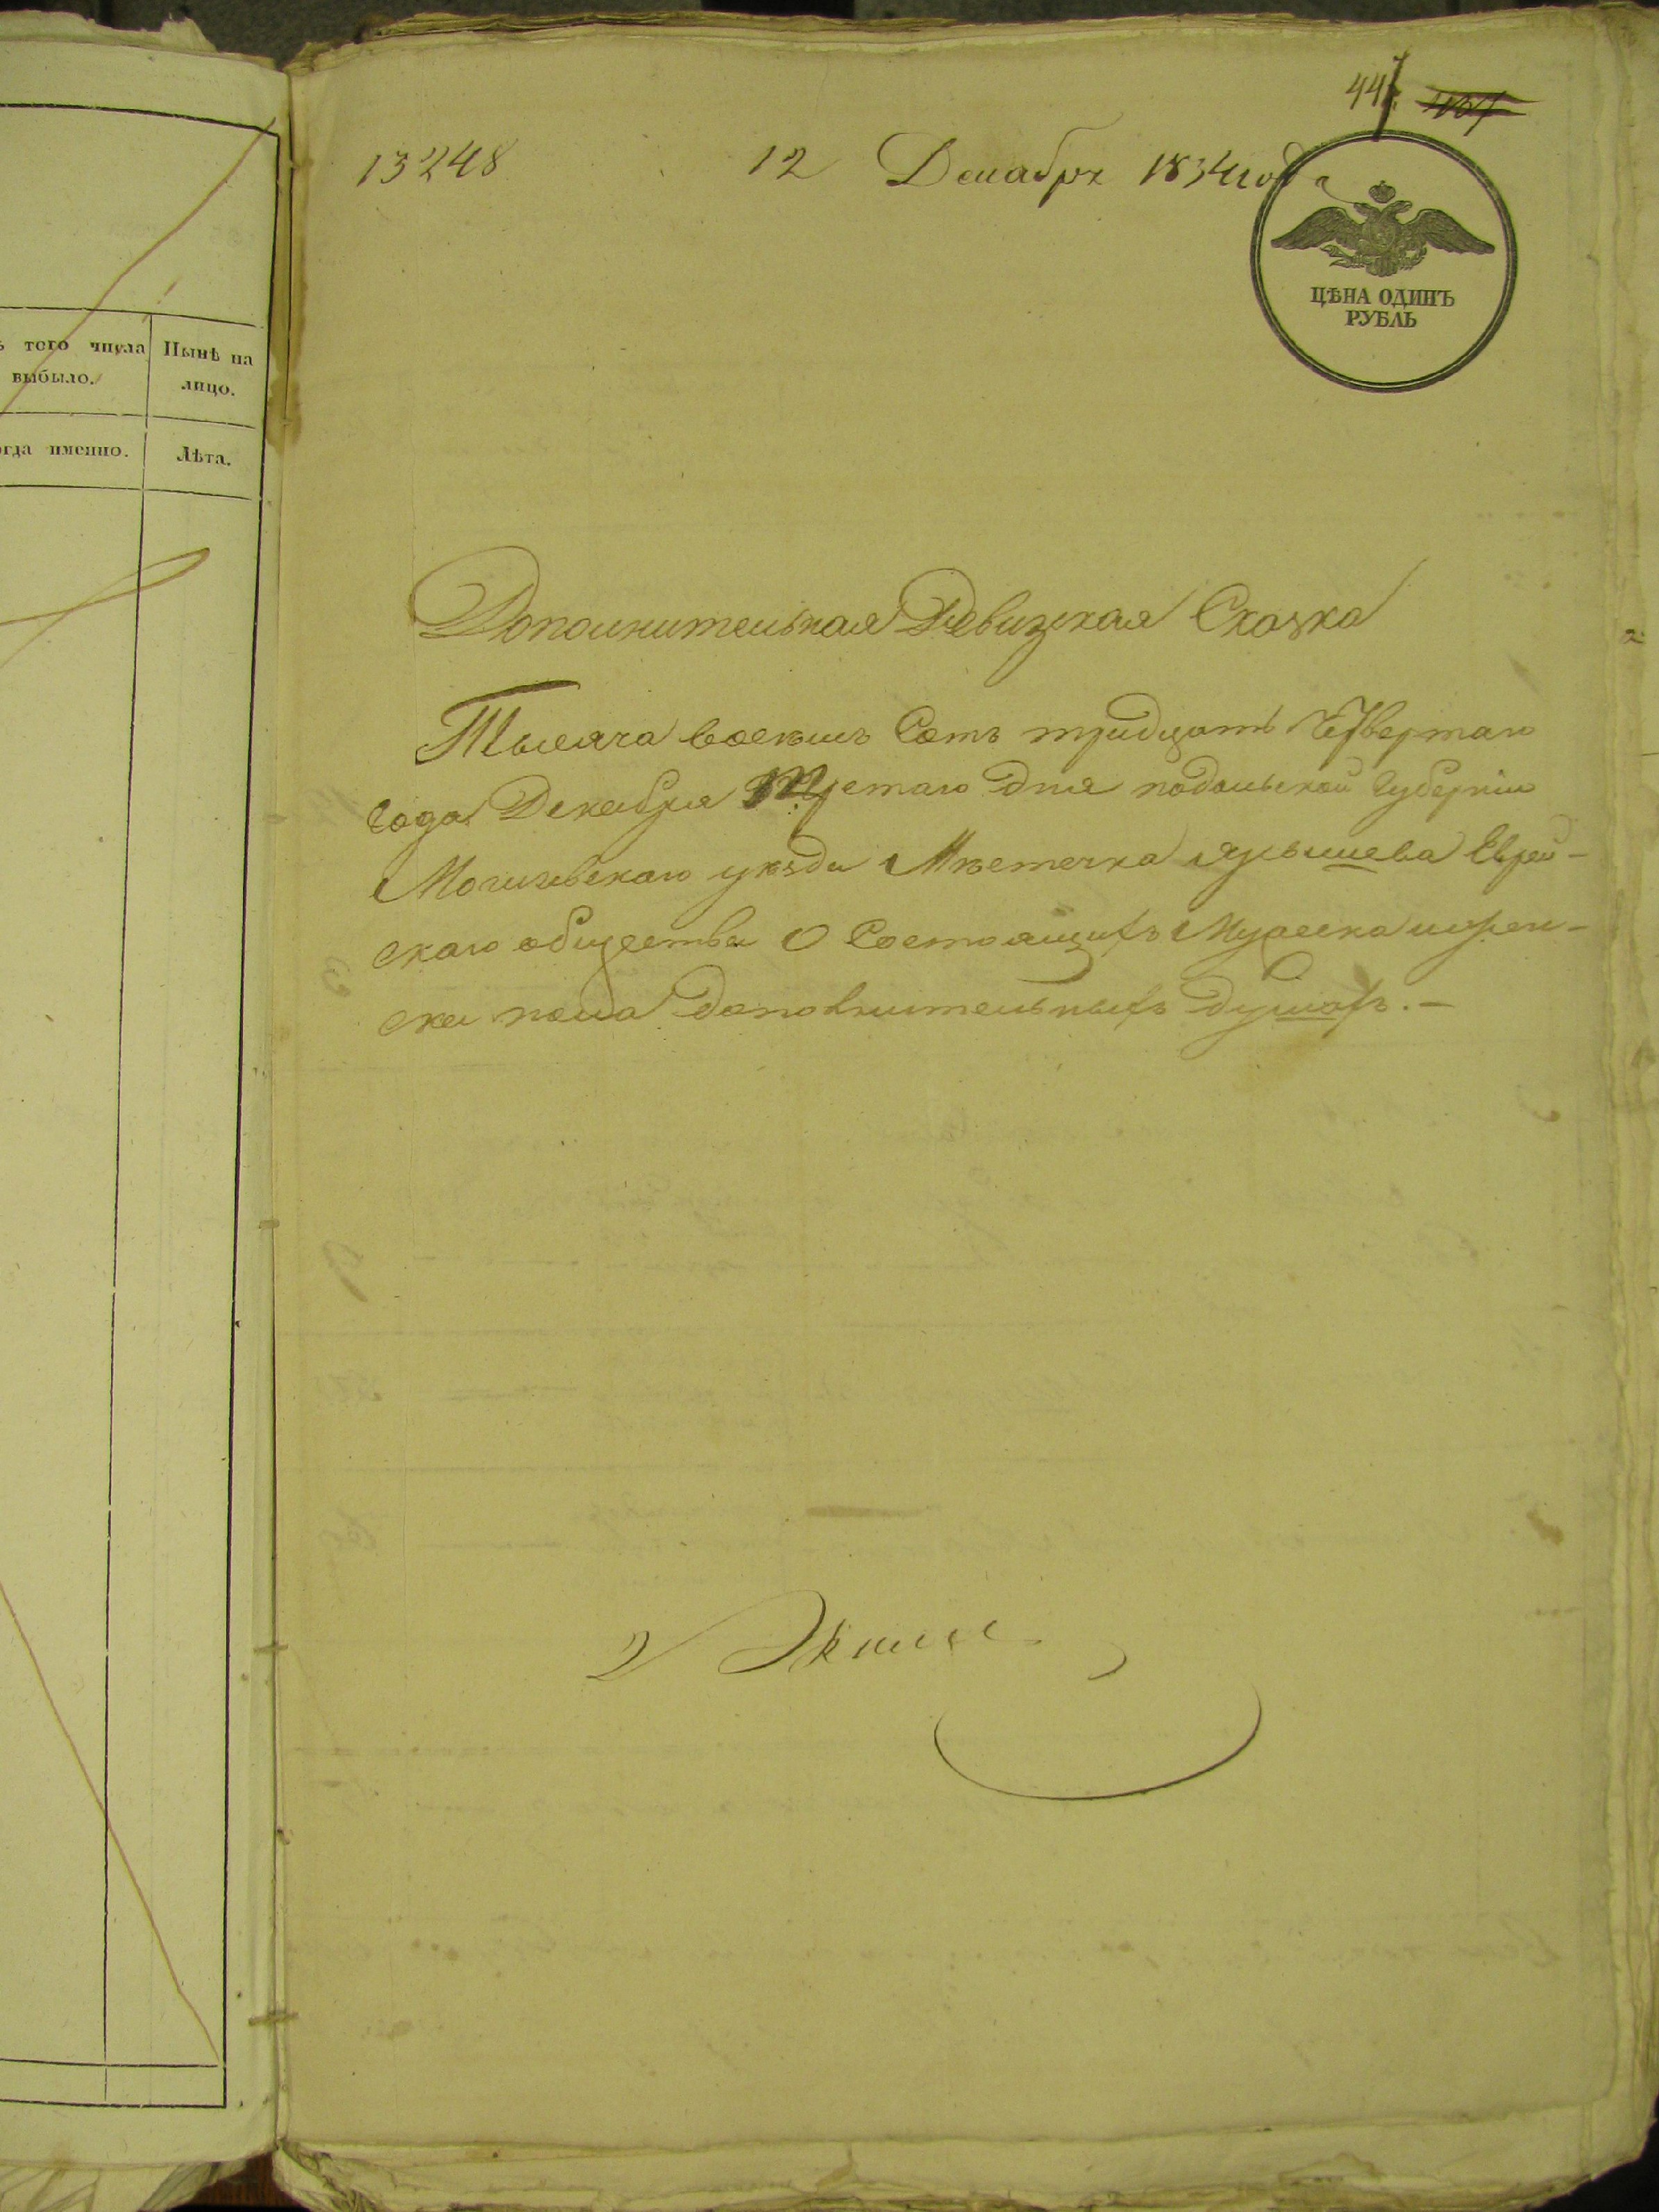 ъ того числа
выбыло.
Нынѣ на
лицо.
огда именно.
Лѣта.
447
13248 12 Декабря 1834 года
ЦѢНА ОДИНЪ
РУБЛЬ
Дополнительная Ревизская Сказка
Тысяча восемь Сотъ тридцать Четвертаго
Года Декабря Третаго дня подольской Губерніи
Могилевскаго уѣзда Мѣстечка Ярышева Еврей-
скаго общества О Состоящихъ Мужеска и жен-
ска пола дополнительныхъ душахъ. —
2